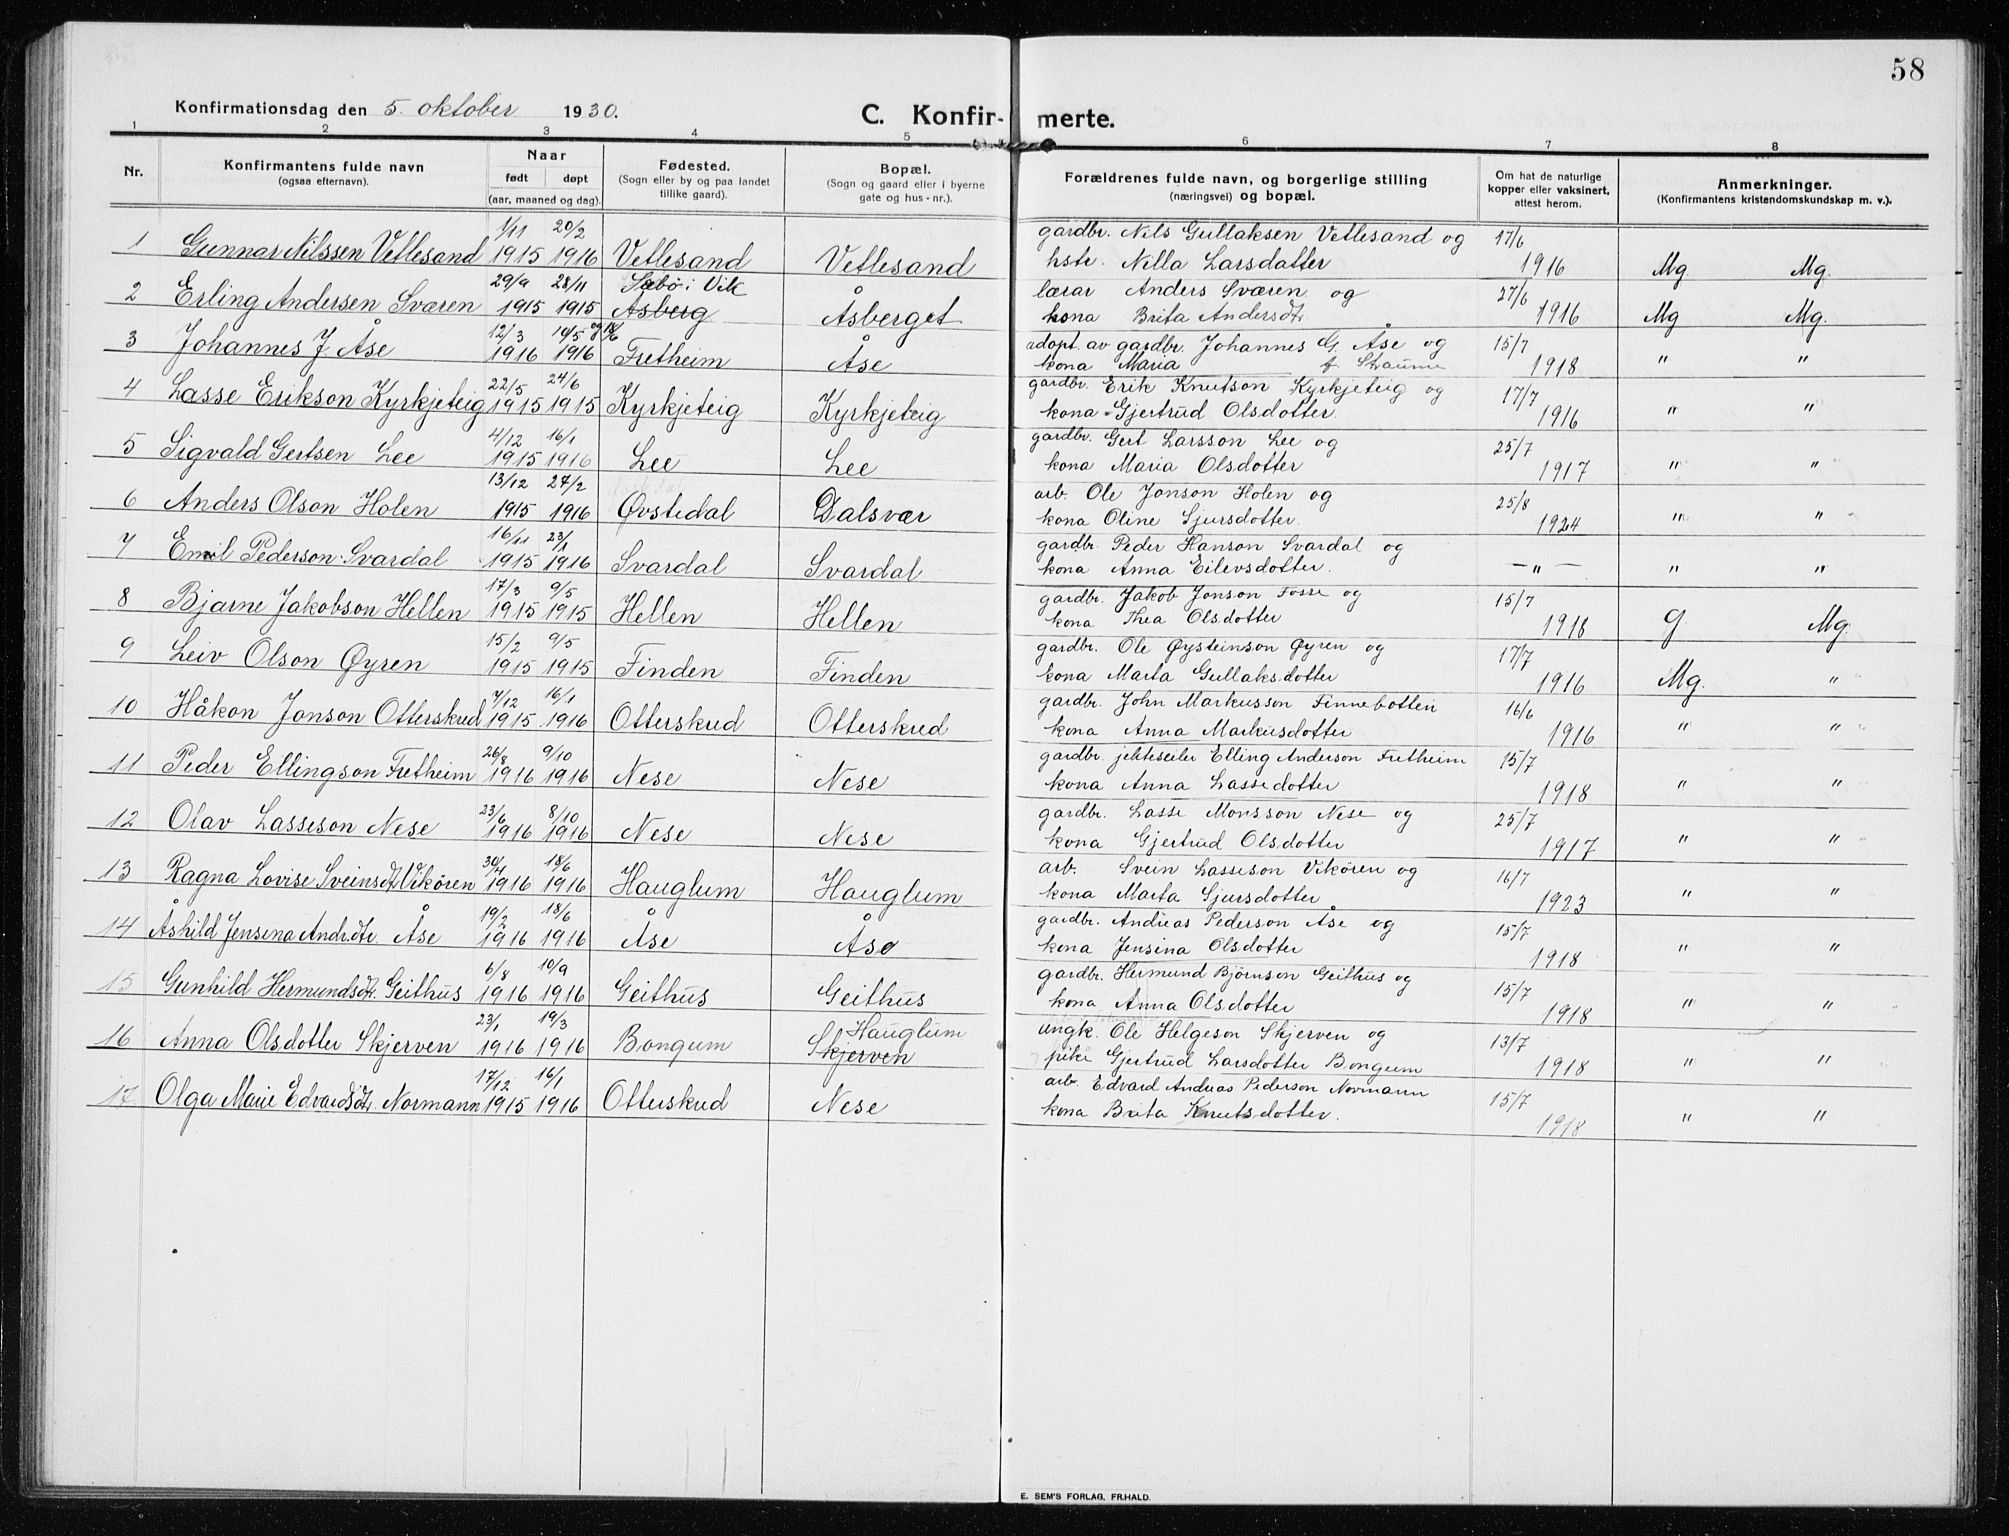 58
Konfirmationsdag den 5. oktober 1930.
C. Konfir- merte.
1 2 3 4 5 6 7 8
Nr. Konfirmantens fulde navn (ogsaa efternavn). Naar født døpt (aar, maaned og dag). Fødested. (Sogn eller by og paa landet tillike gaard). Bopæl. (Sogn og gaard eller i byerne gate og hus-nr.). Forældrenes fulde navn, og borgerlige stilling (næringsvei) og bopæl. Om hat de naturlige kopper eller vaksinert, attest herom. Anmerkninger. (Konfirmantens kristendomskundskap m. v.).
1/11 20/2 gardbr. Nils Gullaksen Vetlesand og 17/6
1 Gunnar Nilssen Vetlesand 1915 1916 Vetlesand Vetlesand hstr. Nilla Larsdatter 1916 Mg Mg.
29/9 28/11 Sæbö i Vik lærar Anders Sværen og 27/6
2 Erling Andersen Sværen 1915 1915 Asberg Åsberget kona Brita Andersdtr. 1916 Mg Mg.
12/3 14/5 og 18/6 adopt. av gardbr. Johannes G. Åse og 15/7
3 Johannes J. Åse 1916 1916 Fretheim Åse kona Maria f. 1918 " "
22/5 24/6 gardbr. Erik Knutson Kyrkjeteig og 17/7
4 Lasse Erikson Kyrkjeteig 1915 1915 Kyrkjeteig Kyrkjeteig kona Gjertrud Olsdotter. 1916 " "
4/12 16/1 gardbr. Gert Larsson Lee og 25/7
5 Sigvald Gertsen Lee 1915 1916 Lee Lee kona Maria Olsdotter 1917 " "
13/12 27/2 arb. Ole Jonson Holen og 25/8
6 Anders Olson Holen 1915 1916 Øvstedal Dalsvær kona Oline Sjursdotter. 1924 " "
16/11 23/1 gardbr. Peder Hanson Svardal og
7 Emil Pederson Svardal 1915 1916 Svardal Svardal kona Anna Eilevsdotter. — " — " "
17/3 9/5 gardbr. Jakob Jonson Fosse og 15/7
8 Bjarne Jakobson Hellen 1915 1915 Hellen Hellen kona Thea Olsdotter 1918 G Mg.
15/2 9/5 gardbr. Ole Øysteinson Øyren og 17/7
9 Leiv Olson Øyren 1915 1915 Finden Finden kona Marta Gullaksdotter 1916 Mg. "
7/12 16/1 gardbr. John Markusson Finnebotten 16/6
10 Håkon Jonson Otterskred 1915 1916 Otterskred Otterskred kona Anna Markusdotter 1916 " "
26/8 9/10 gardbr. jekteseiler Elling Anderson Fretheim 15/7
11 Peder Ellingson Fretheim 1916 1916 Nese Nese kona Anna Lassedotter 1918 " "
23/6 8/10 gardbr. Lasse Monsson Nese og 25/7
12 Olav Lasseson Nese 1916 1916 Nese Nese kona Gjertrud Olsdotter 1917 " "
30/4 18/6 arb. Svein Lasseson Vikören og 16/7
13 Ragna Lovise Sveinsdt. Vikören 1916 1916 Hauglum Hauglum kona Marta Sjursdotter 1923 " "
19/2 18/6 gardbr. Andreas Pederson Åse og 15/7
14 Åshild Jensina Andr.dtr. Åse 1916 1916 Åse Åse kona Jensina Olsdotter 1918 " "
6/8 10/9 gardbr. Hermund Björnson Geithus og 15/7
15 Gunhild Hermundsdt. Geithus 1916 1916 Geithus Geithus kona Anna Olsdotter 1918 " "
23/1 19/3 Hauglum ungk. Ole Helgeson Skjerven og 13/7
16 Anna Olsdotter Skjerven 1916 1916 Bongum Skjerven pike Gjertrud Larsdotter Bongum 1918 " "
17/12 16/1 arb. Edvard Andreas Pederson Normann 15/7
17 Olga Marie Edvardsdt. Normann 1915 1916 Otterskred Nese kona Brita Knutsdotter. 1918 " "
E. SEM'S FORLAG, FR.HALD.